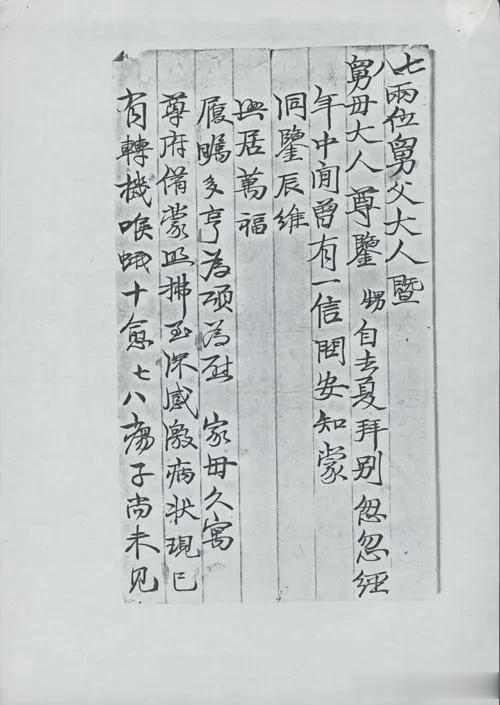 七八兩位舅父大人暨
舅毌大人尊鑒 甥自去夏拜别忽忽經
年中间曾有一信問安知蒙
洞鑒辰維
興居萬福
履多亨為頌為慰 家毌久寓
尊府備蒙照拂至深感激病狀現已
有轉機喉蛾十愈七八瘍子尚未见